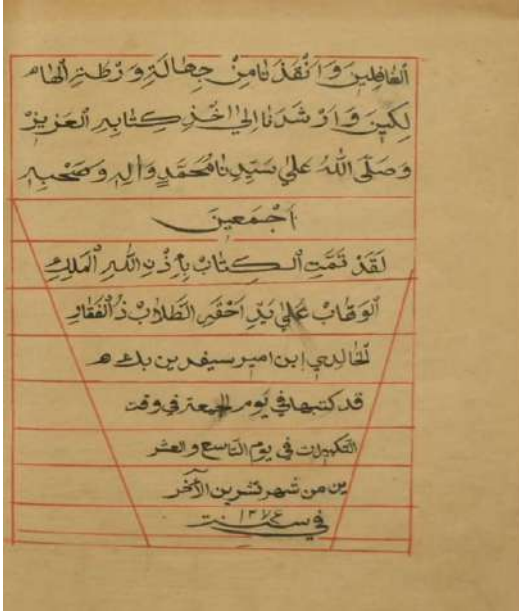 الغافلين وَاَنْقَذَنَا مِنْ جِهَالَةِ وَرْطَةِ الْهَا
لِكينَ وَاَرْشَدَنَا اِلىٰ اَخْذِ كِتَابِهِ الْعَزيزْ
وَصَلَّى اللّٰهُ عَلىٰ سَيِّدِنَا مُحَمَّدٍ وَاٰلِهِ وَصَحْبِهِ
اَجْمَعينَ
لَقَدْ تَمَّتِ الْكِتَابْ بِاِذْنِ اللّٰهِ الْمَلِكِ
الْوَهَّابْ عَلىٰ يَدِ اَحْقَرِ الطُّلَابْ ذُ الْفَقَارِ
الْخَالِدِي اِبن امير سيفدين بك
قد كتبها في يَوم الجمعة في وقت
في يوم التاسع والعشر
ين من شهر تشرين الآخر
في سنت ١٣٧٤